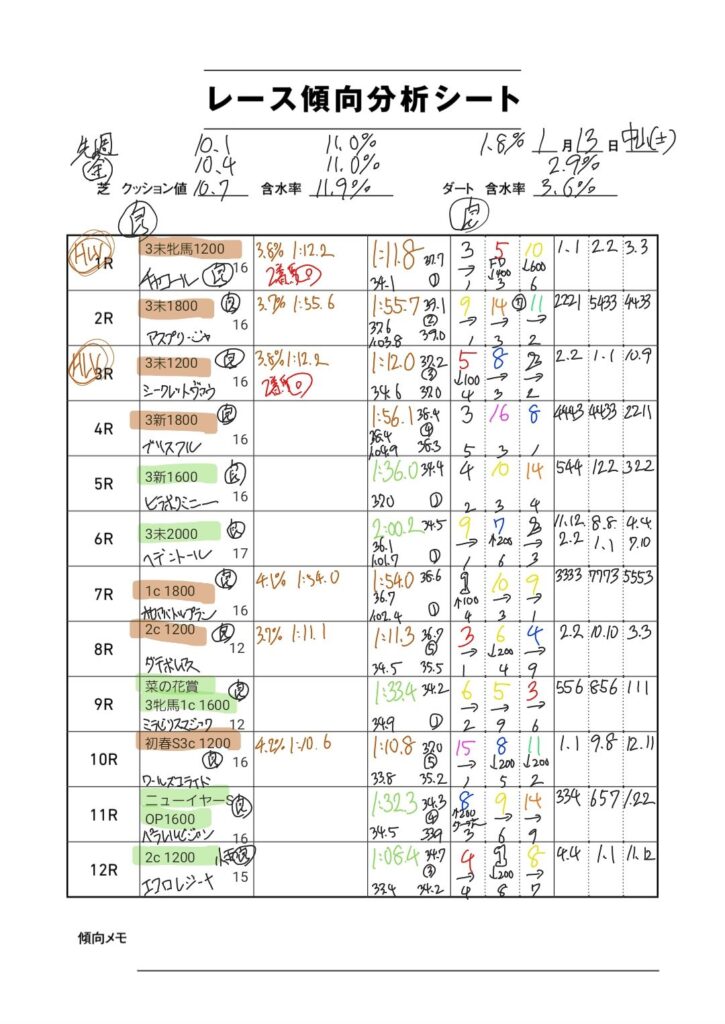 レース傾向分析シート
先週 10.1 11.0% 1.8% 1月13日 中山(土)
金 10.4 11.0% 2.9%
芝 クッション値 10.7 含水率 11.9% ダート 含水率 3.6%
良 良
HLV 3未牝馬1200 3.8% 1:12.2 1:11.8 37.7 3 5 10 1.1 2.2 3.3
1R チャコール 良 16 2番馬 34.1 ① → FD ↓400 ↓600
1 3 6
3未1800 良 3.7% 1:55.6 1:55.7 39.1 9 14 ⑦ 11 2221 5433 4433
2R 16 37.6 ② → → →
アスプリージャ 1:03.8 39.0 1 3 2
HLV 3未1200 良 3.8% 1:12.2 1:12.0 37.2 5 8 2.2 1.1 10.9
3R 16 2番馬 ③ ↓100 → →
シークレットヴァウ 34.6 37.0 4 3 2
3新1800 良 1:56.1 38.4 3 16 8 4443 4433 2211
4R 16 38.4 ④
ブリスフル 1:04.9 38.3 5 3 1
3新1600 良 1:36.0 34.4 4 10 14 544 122 322
5R 16
ビラボクミニー 37.0 ① 2 3 4
3未2000 良 2:00.2 34.5 9 7 11.12 8.8 4.4
6R 36.1 → ↑200 → 2.2 1.1 7.10
ヘデントール 17 1:01.7 ① 1 6 3
1c 1800 良 4.1% 1:54.0 1:54.0 38.6 1 10 9 3333 7773 5553
7R 36.7 ↑100 → →
16 1:02.4 ① 4 3 1
2c 1200 良 3.7% 1:11.1 1:11.3 36.7 3 6 4 2.2 10.10 3.3
8R 12 ⑤ → ↓200 →
34.5 35.5 1 4 9
菜の花賞 良 1:33.4 34.2 6 5 3 556 856 111
9R 3牝馬1c 1600 → → →
ミラビリスマジック 12 34.9 ① 2 9 6
初春S3c 1200 4.2% 1:10.6 1:10.8 37.0 15 8 11 1.1 9.8 12.11
10R 良 16 ⑤ → ↓200 ↓200
ワールズコライド 33.8 35.2 1 5 2
ニューイヤーS 良 1:32.3 34.3 8 9 14 334 657 1.22
11R OP1600 ④ ↑200 → →
16 34.5 33.9 3 6 9
2c 1200 1:08.4 34.7 4 1 8 4.4 1.1 11.12
12R 15 ③ → ↓200 →
エコロレジーナ 33.4 34.2 4 8 7
傾向メモ